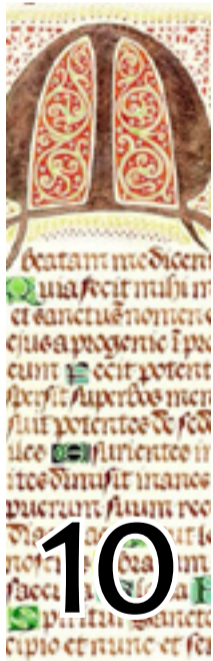 M
beatam me dicen
Quia fecit mihi m
et sanctus nomen e
ejus a progenie ī pro
eum Fecit potent
spersit superbos men
suit potentes de sed
les Esurientes i
ites dimisit inanes
puerum suum rec
10
Spiritui sancto
cipio et nunc et se